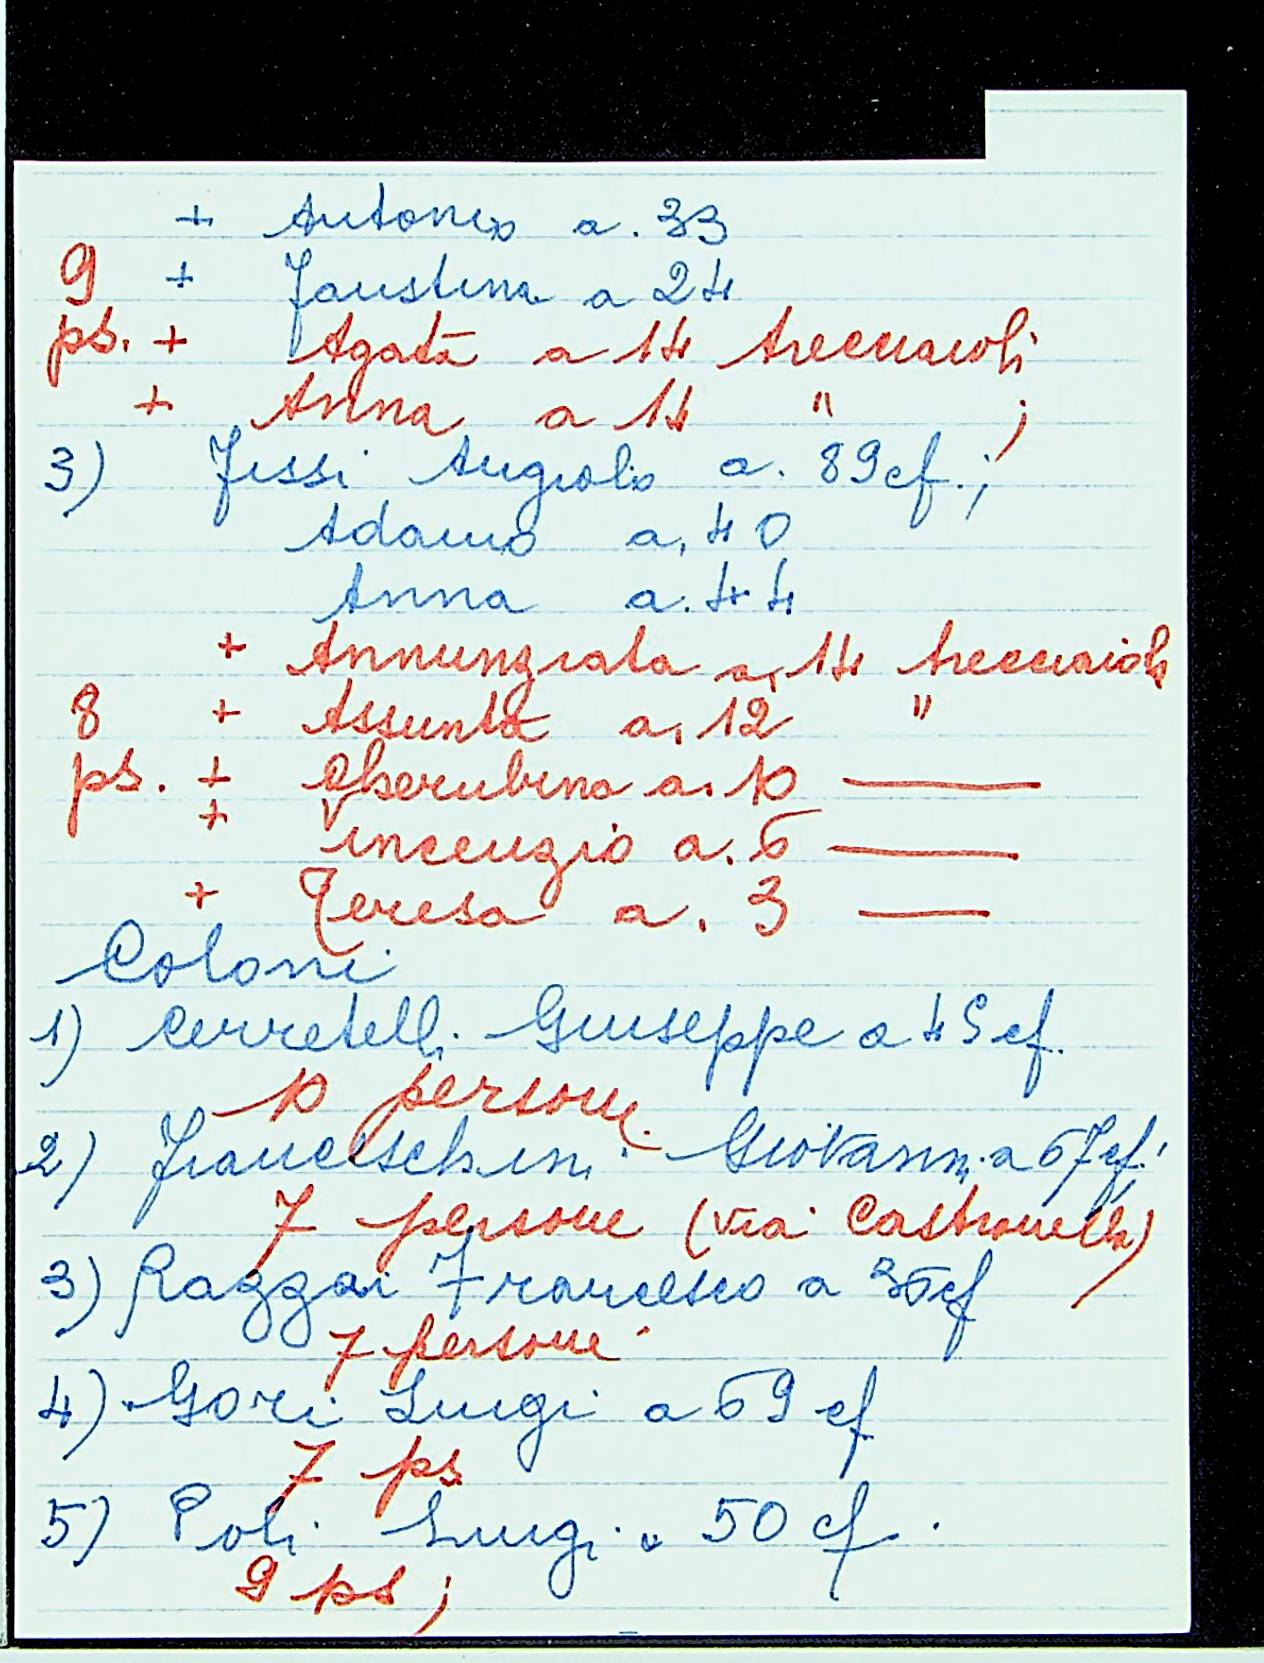 + Antonio a. 33
9 + Faustina a 24
ps. + Agata a 14 trecciaioli
+ Anna a 14 " ;
3) Fissi Angiolo a. 89 cf. ;
Adamo a. 40
Anna a. 44
+ Annunziata a. 14 trecciaiola
8 + Assunta a. 12 "
ps. + Cherubino a. 10 ——
+ Vincenzio a. 6 ——
+ Teresa a. 3 ——
Coloni
1) Cerretelli Giuseppe a 45 cf.
10 persone
2) Franceschini Giovanni a 67 cf.
7 persone (via Castronella)
3) Razzai Francesco a 36 cf
7 persone
4) Gori Luigi a 69 cf
7 ps
5) Poli Luigi a 50 cf.
9 ps ;